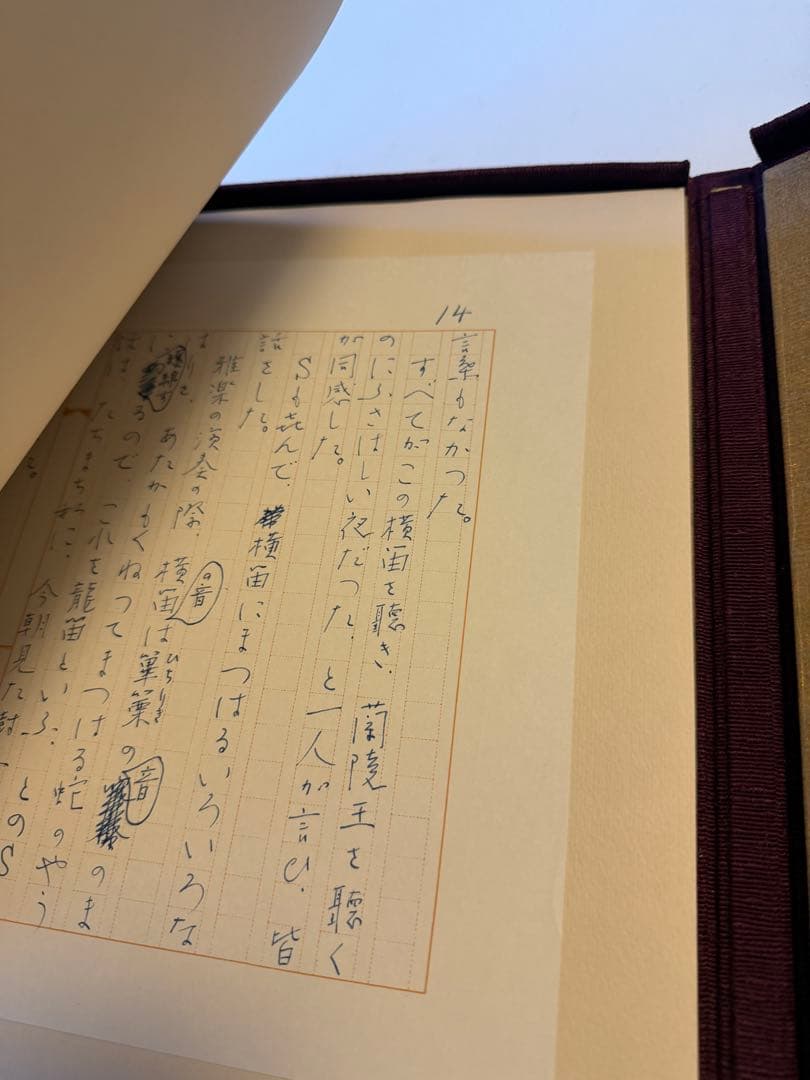 14
言葉もなかつた。
すべてがこの横笛を聴き、蘭陵王を聴く
のにふさはしい夜だつた、と一人が言ひ、皆
が同感した。
Sも㐂んで、横笛にまつはるいろいろな
話をした。
雅楽の演奏の際、横笛の音は篳篥ひちりきの音のま
はりを、あたかもくねつてまつはる蛇のやう
に るので、これを龍笛といふ。
たちまち私に、今朝見た とのS
た。